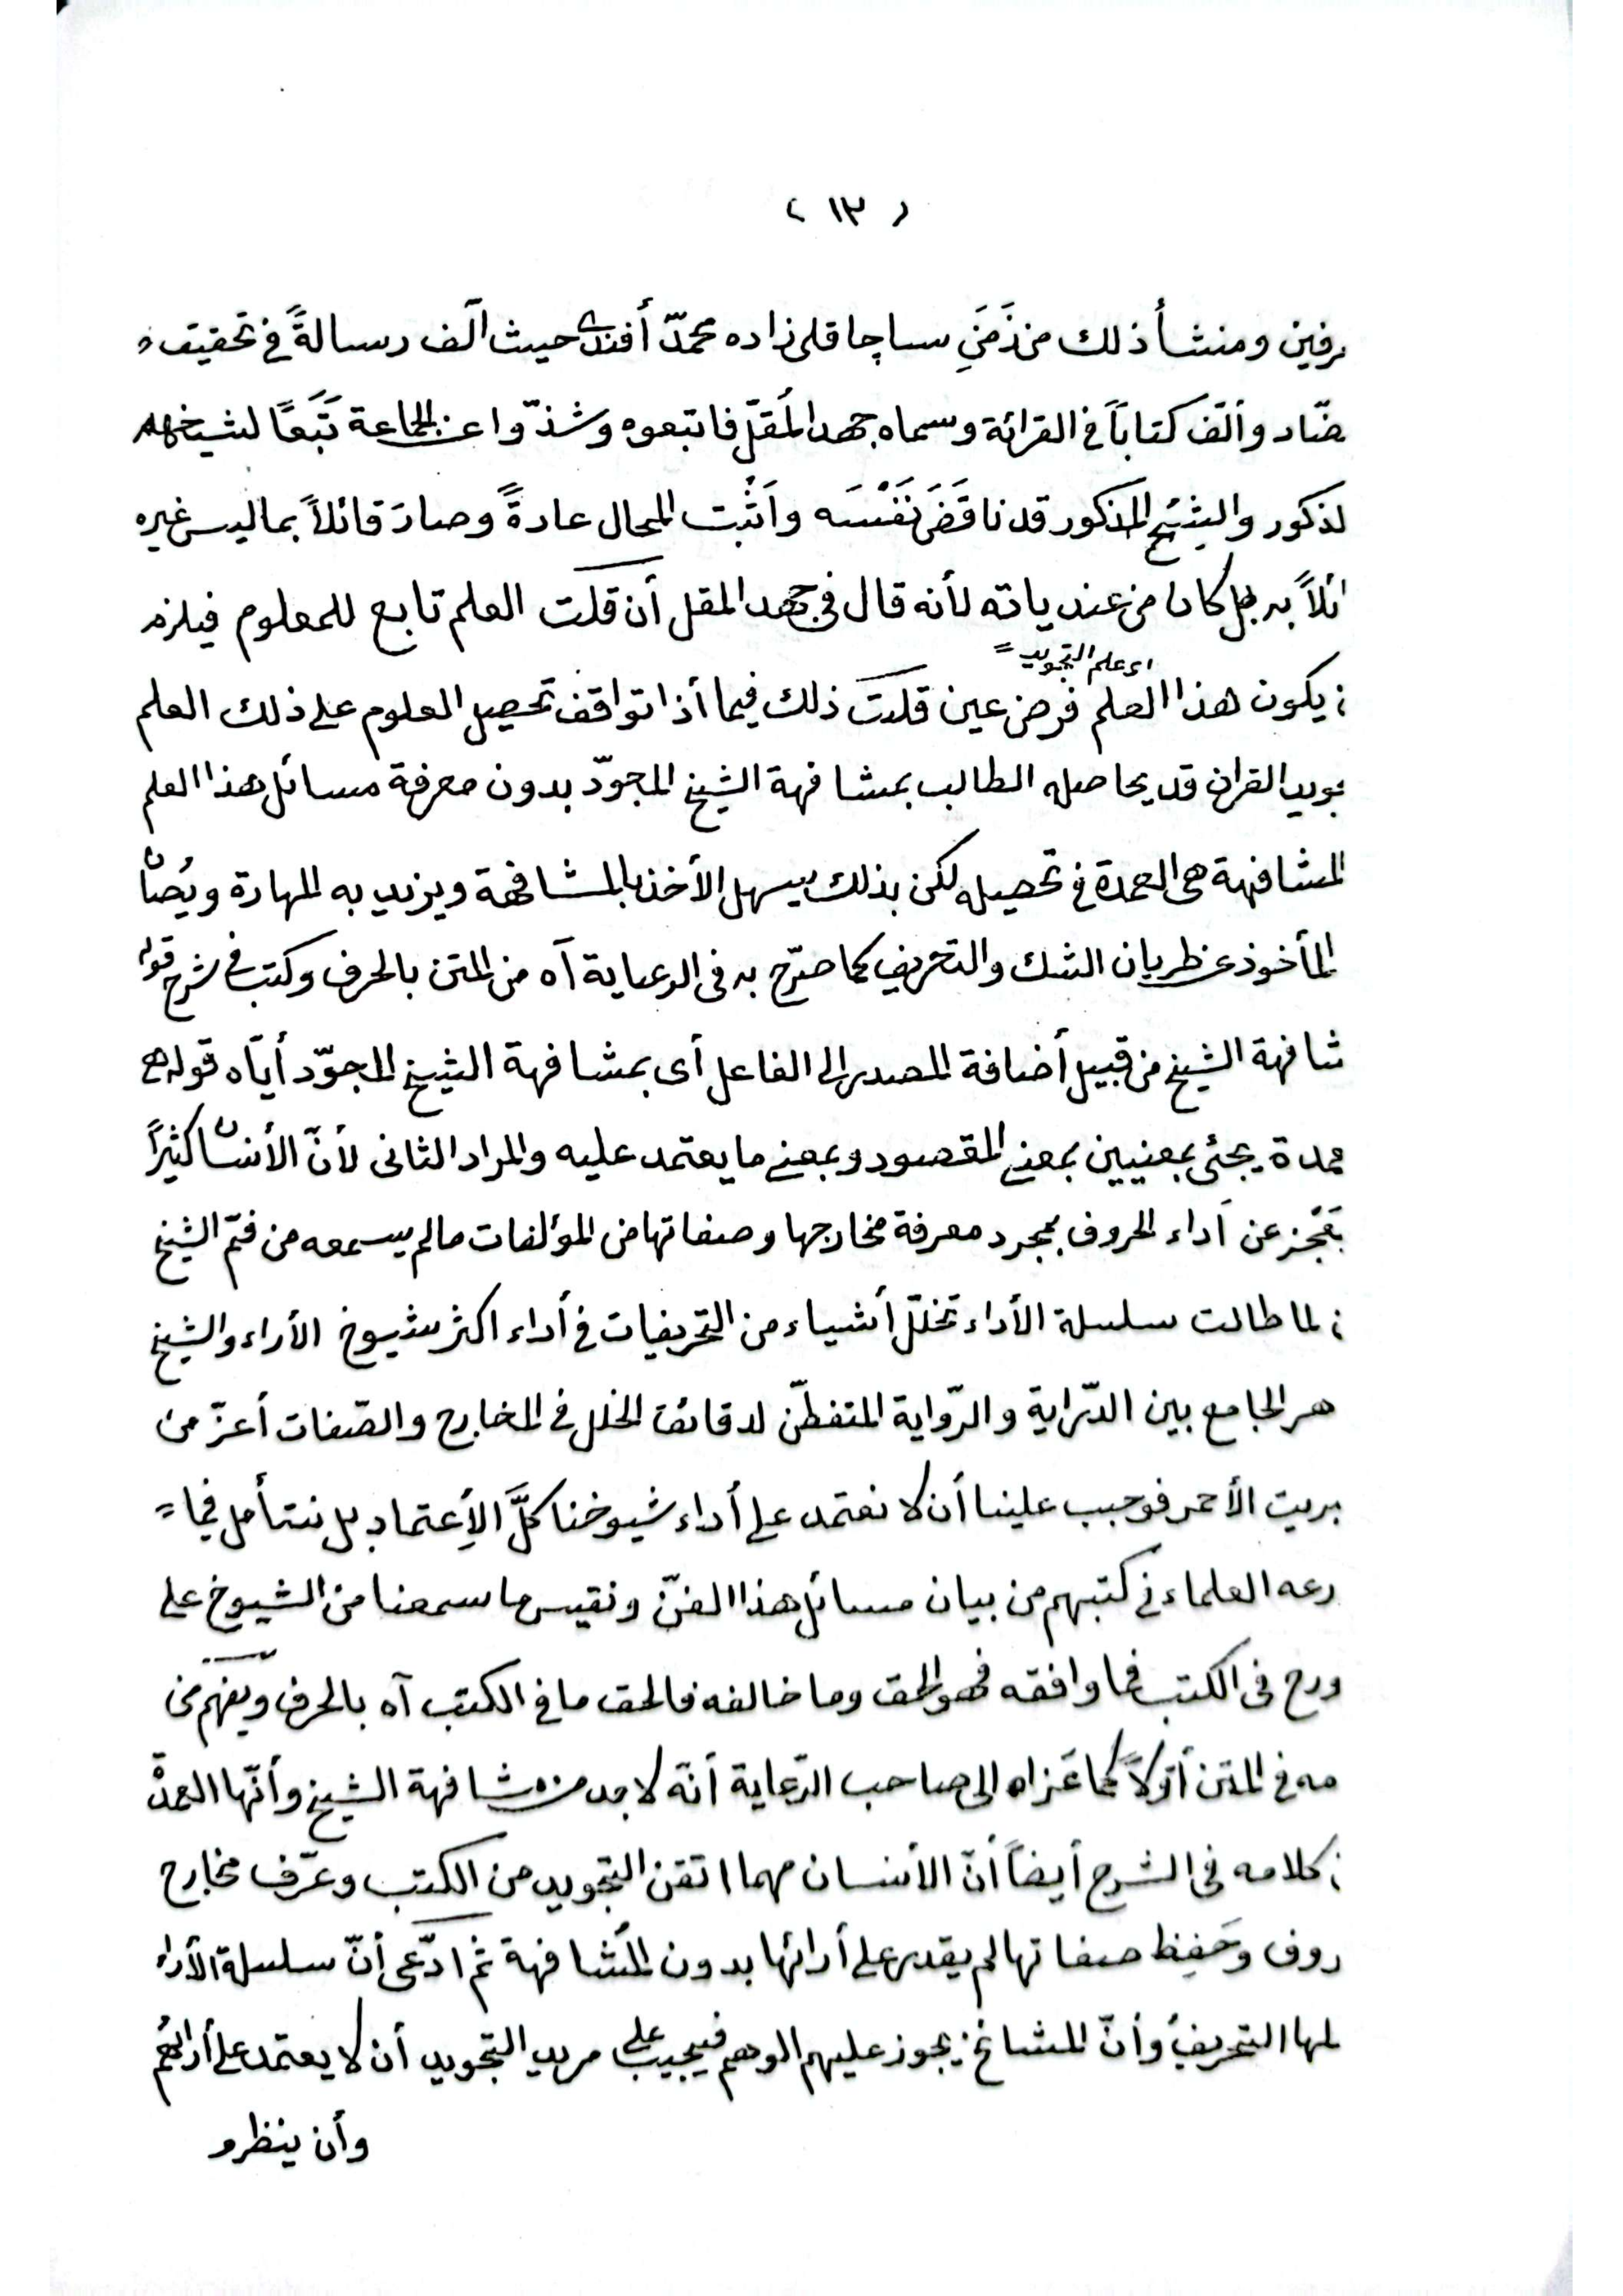 ( ١٣ )
رفين ومنشأ ذلك من زَمَنِ ساچاقلى زاده محمّد أفندى حيث ألّف رسالةً فى تحقيق
ضّاد وألّف كتاباً فى القرائة وسماه جهد المُقلّ فاتبعوه وشذّوا عن الجماعة تَبَعاً لشيخهم
لذكور والشيخ المذكور قد ناقَضَ نَفْسَه واَثْبت المحال عادةً وصارَ قائلاً بما ليس غيره
ائلاً به بل كان من عندياته لأنه قال فى جهد المقل أن قلتَ العلم تابع للمعلوم فيلزم
اى علم التجويد =
ن يكون هذا العلم فرض عين قلتُ ذلك فيما أذا تواقف تحصيل المعلوم على ذلك العلم
جويد القران قد يحاصله الطالب بمشافهة الشيخ المجوّد بدون معرفة مسائل هذا العلم
المشافهة هى العمدة فى تحصيله لكن بذلك يسهل الأخذ بالمشافهة ويزيد به المهارة ويُصان
المأخوذ عن طريان الشك والتحريف كما صرّح به فى الرعاية آه من المتن بالحرف وكتب فى شرح قوله
شافهة الشيخ من قبيل أضافة المصدر الى الفاعل أى بمشافهة الشيخ المجوّد أيّاه قوله هى
عمدة يجئى بمعنيين بمعنى المقصود وبمعنى ما يعتمد عليه والمراد الثانى لأنّ الأنسان كثيراً
يَعْجز عن أداء الحروف بمجرد معرفة مخارجها وصفاتها من المؤلفات مالم يسمعه من فمّ الشيخ
ن لما طالت سلسلة الأداء تخلّل أشياء من التحريفات فى أداء اكثر شيوخ الأداء والشيخ
هر الجامع بين الدّراية والرّواية المتفطّن لدقائق الخلل فى المخارج والصّفات أعزّ من
بريت الأحمر فوجب علينا أن لا نعتمد على أداء شيوخنا كلَّ الأِعتماد بل نتأمل فيما =
دعه العلماء فى كتبهم من بيان مسائل هذا الفنّ ونقيس ما سمعنا من الشيوخ على
ودع فى الكتب فما وافقه فهو الحق وما خالفه فالحق ما فى الكتب آه بالحرف ويفهم من
مه فى المتن أوّلاً كما عَزاه الى صاحب الرّعاية أنّه لا بد من مشافهة الشيخ وأنّها العمدة
ن كلامه فى الشرح أيضاً أنّ الأنسان مهما اتقن التجويد من الكتب وعرّف مخارج
روف وحَفِظ صفاتها لم يقدر على أدائها بدون المُشافهة ثم ادّعى أنّ سلسلة الأداء
لها التحريفُ وأنّ المشائخ يجوز عليهم الوهم فيجب على مريد التجويد أن لا يعتمد على أدائهم
وأن ينظر